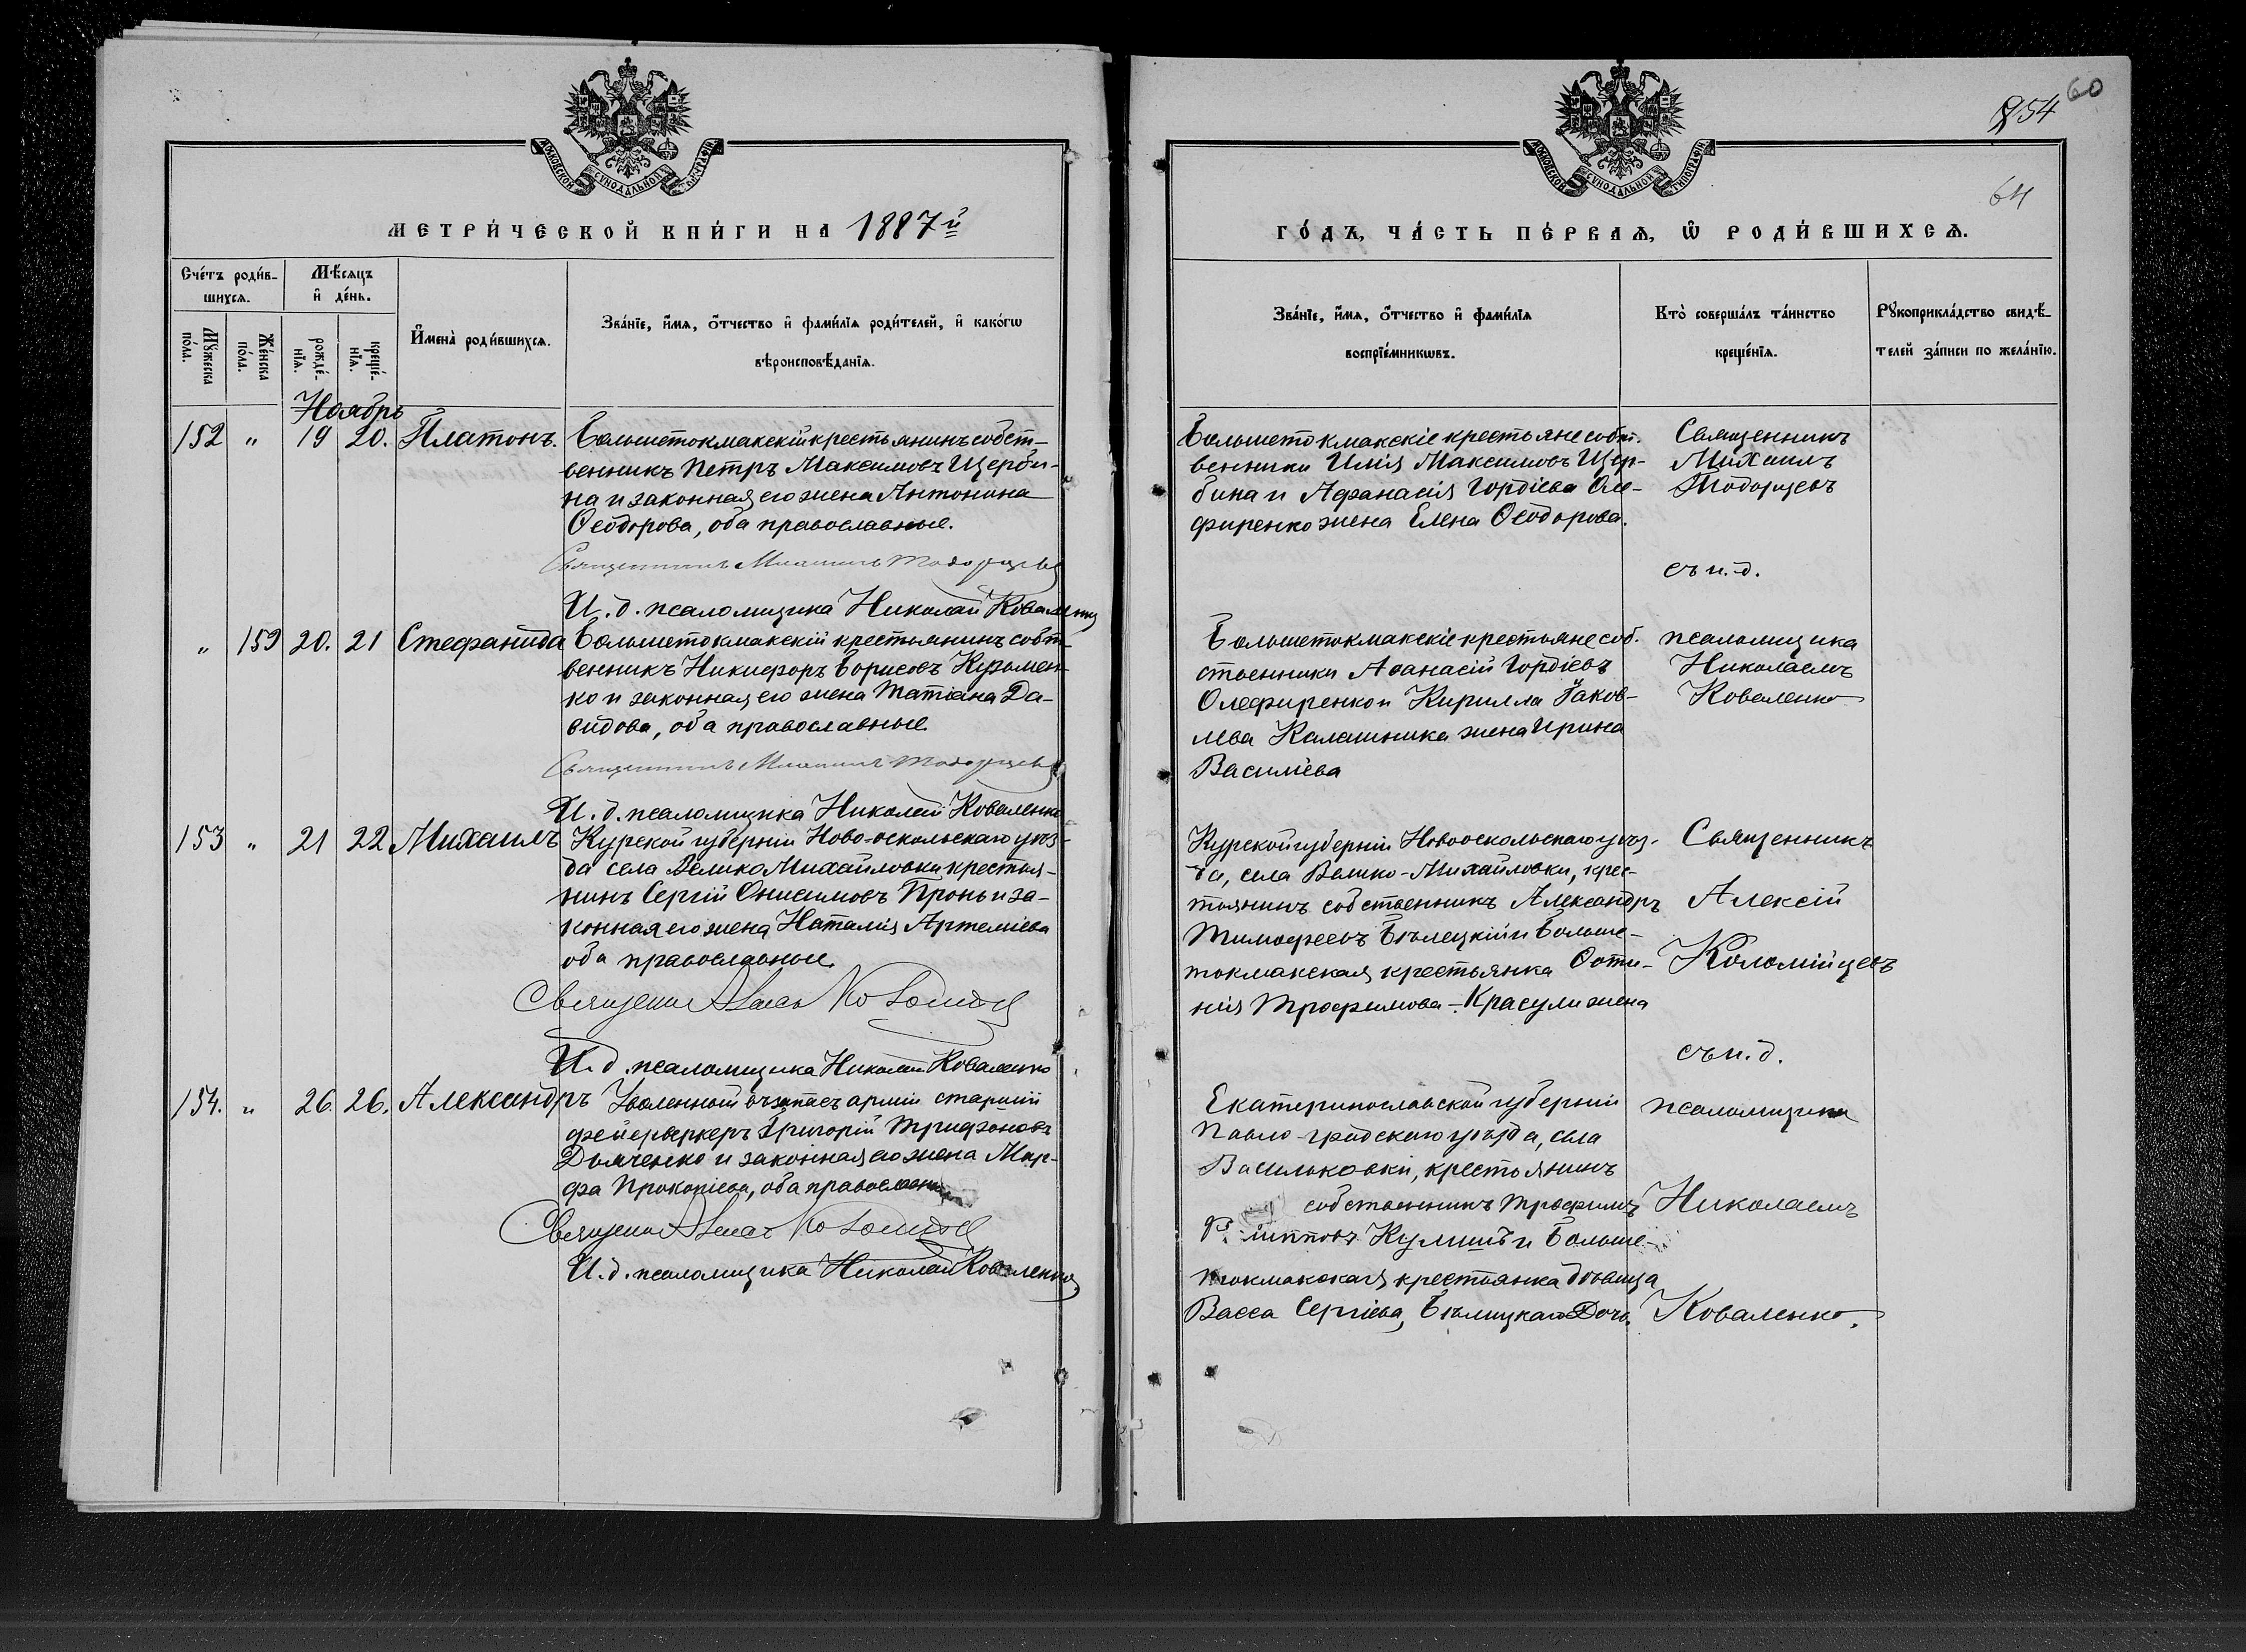 МОСКОВСКОЙ СУНОДАЛЬНОЙ ТИПОГРАФІИ
МЕТРИ́ЧЕСКОЙ КНИ́ГИ НА 1887й
Сче́тъ роди́в-
шихсѧ.
Мѣ́сѧцъ
и҆ де́нь.
Мꙋ́жеска
по́ла.
Же́нска
по́ла.
рожде́-
нїѧ.
креще́-
нїѧ.
И҆мена̀ роди́вшихсѧ.
Зва́нїе, и҆́мѧ, ѻ҆́тчество и҆ фами́лїѧ роди́телей, и҆ како́гѡ
вѣроисповѣ́данїѧ.
Ноябрь
152 " 19 20. Платонъ. Большетокмакскій крестьянинъ собст-
венникъ Петръ Максимовъ Щерби-
на и законная его жена Антонина
Ѳеодорова, оба православные.
Священникъ Михаилъ Тодорцевъ
И. д. псаломщика Николай Коваленко
" 159 20. 21 Стефанида Большетокмакскій крестьянинъ собст-
венникъ Никифоръ Борисовъ Кузьмен-
ко и законная его жена Татіана Да-
видова, оба православные
Священникъ Михаилъ Тодорцевъ
И. д. псаломщика Николай Коваленко
153 " 21 22 Михаилъ Курской губерніи Ново-оскольскаго уѣз-
да села Велико Михайловки крестья-
нинъ Сергій Онисимовъ Пронь и за-
конная его жена Наталія Артеміева
оба православные.
И. д. псаломщика Николай Коваленко
154. " 26 26. Александръ Уволенный въ запасъ арміи старшій
фейерверкеръ Григорій Трифоновъ
Дьяченко и законная его жена Мар-
фа Прокопіева, оба православн
И. д. псаломщика Николай Коваленко
60
54
64
МОСКОВСКОЙ СУНОДАЛЬНОЙ ТИПОГРАФІИ
ГО́ДЪ, ЧА́СТЬ ПЕ́РВАѦ, Ѡ РОДИ́ВШИХСѦ.
Зва́нїе, и҆́мѧ, ѻ҆́тчество и҆ фами́лїѧ
воспрїе́мникѡвъ.
Кто̀ соверша́лъ та́инство
креще́нїѧ.
Рꙋкоприкла́дство свидѣ́-
телей за́писи по жела́нїю.
Большетокмакскіе крестьяне собст.
венники Илія Максимовъ Щер-
бина и Афанасія Гордіева Оле-
фиренко жена Елена Ѳеодорова.
Священникъ
Михаилъ
Тодорцевъ
съ и. д.
Большетокмакскіе крестьяне соб.
ственники Аѳанасій Гордіевъ
Олефиренко и Кирилла Іаков-
лева Калашника жена Ирина
Василіева
псаломщика
Николаемъ
Коваленко
Курской губерніи Новооскольскаго уѣз-
да, села Велико-Михайловки, крес-
тьянинъ собственникъ Александръ
Тимофеевъ Бѣлецкій и Больше-
токмакская крестьянка Фоти-
нія Трофимова - Красули жена
Священникъ
Алексій
Коломійцевъ
съ и. д.
Екатеринославской губерніи
Павло-градскаго уѣзда, села
Васильковки, крестьянинъ
собственникъ Трофимъ
Кулишъ и Больше-
токмакская крестьянка дѣвица
Васса Сергіева, Бѣлицкаго Дочь.
псаломщика
Николаемъ
Коваленко.